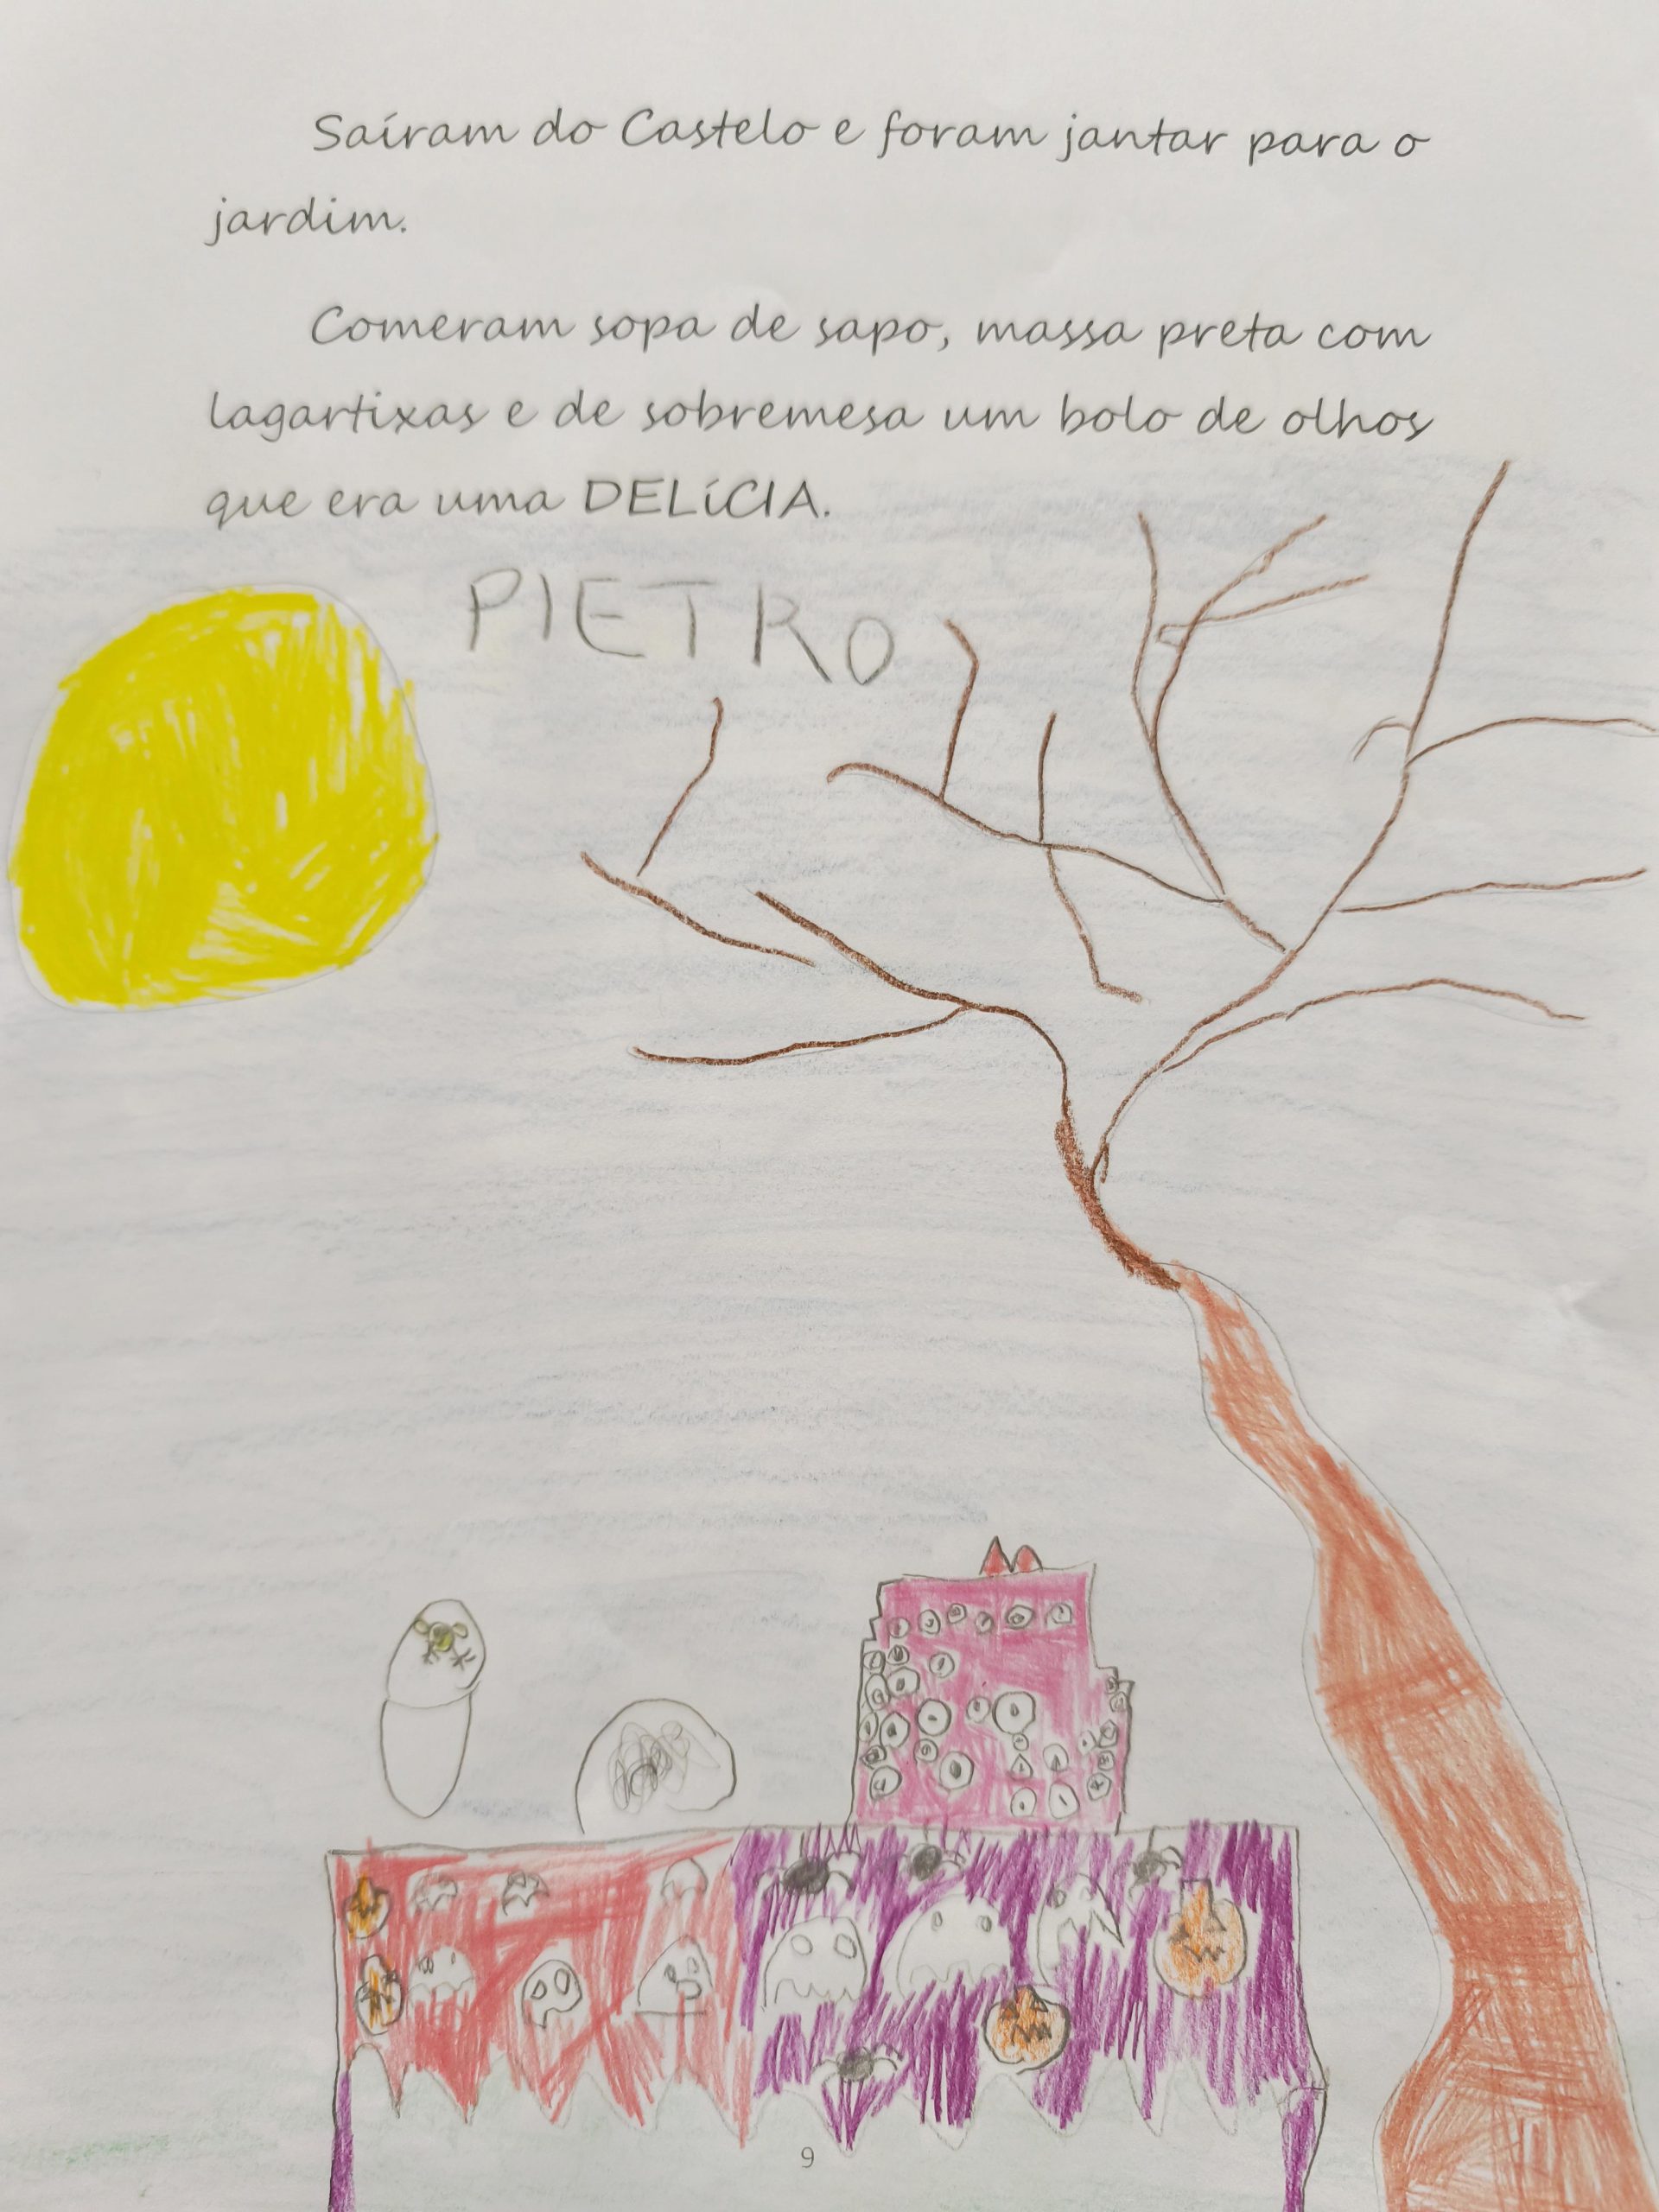 Saíram do Castelo e foram jantar para o
jardim.
Comeram sopa de sapo, massa preta com
lagartixas e de sobremesa um bolo de olhos
que era uma DELíCIA.
PIETRO
9